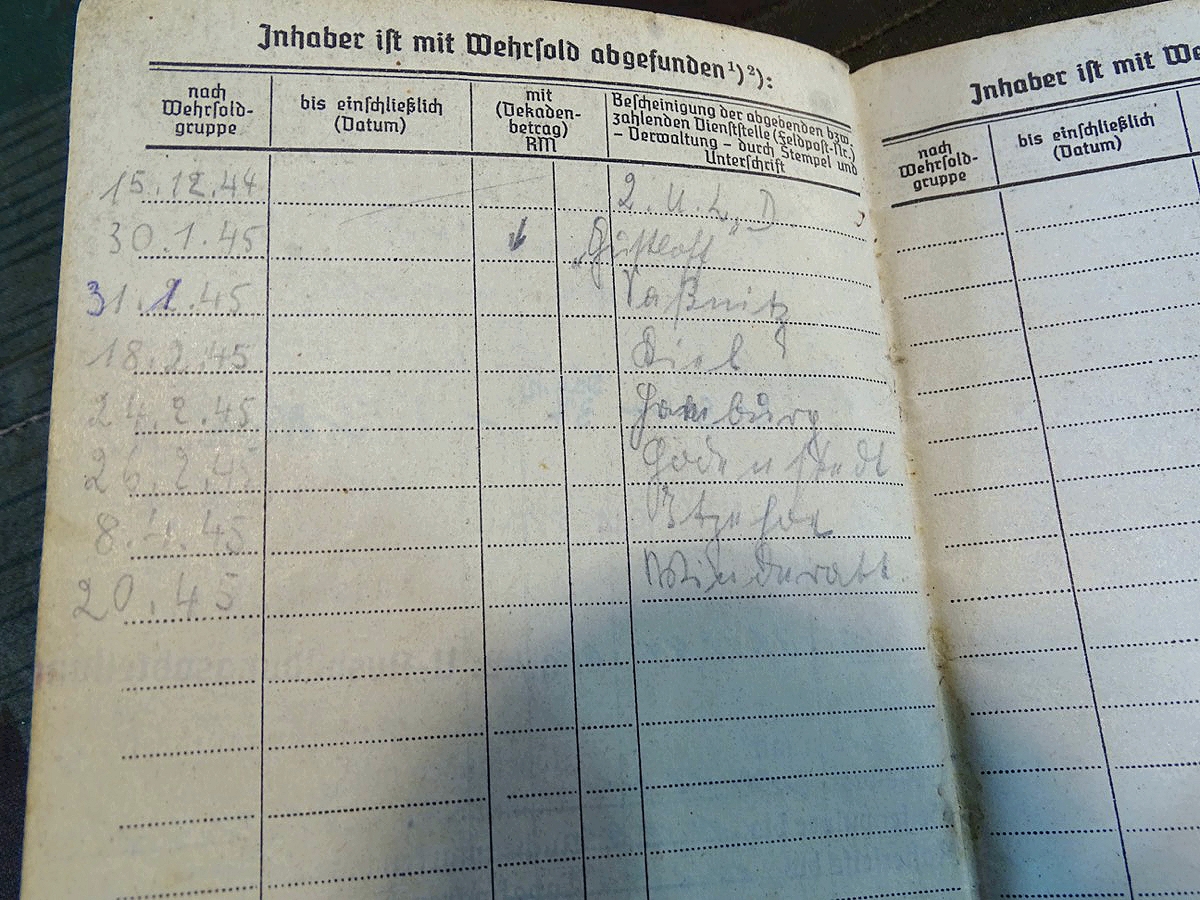 Inhaber ist mit Wehrsold abgefunden¹)²):
nach
Wehrsold-
gruppe
bis einschließlich
(Datum)
mit
(Dekaden-
betrag)
RM
Bescheinigung der abgebenden bzw.
zahlenden Dienststelle (Feldpost-Nr.)
– Verwaltung – durch Stempel und
Unterschrift
15.12.44 2. U.L.D
30.1.45 „Gustloff
31.1.45 Saßnitz
18.2.45 Kiel
24.2.45 Hamburg
26.2.45
8.4.45 Itzehoe
20.45 Minderatt
Inhaber ist mit We
nach
Wehrsold-
gruppe
bis einschließlich
(Datum)